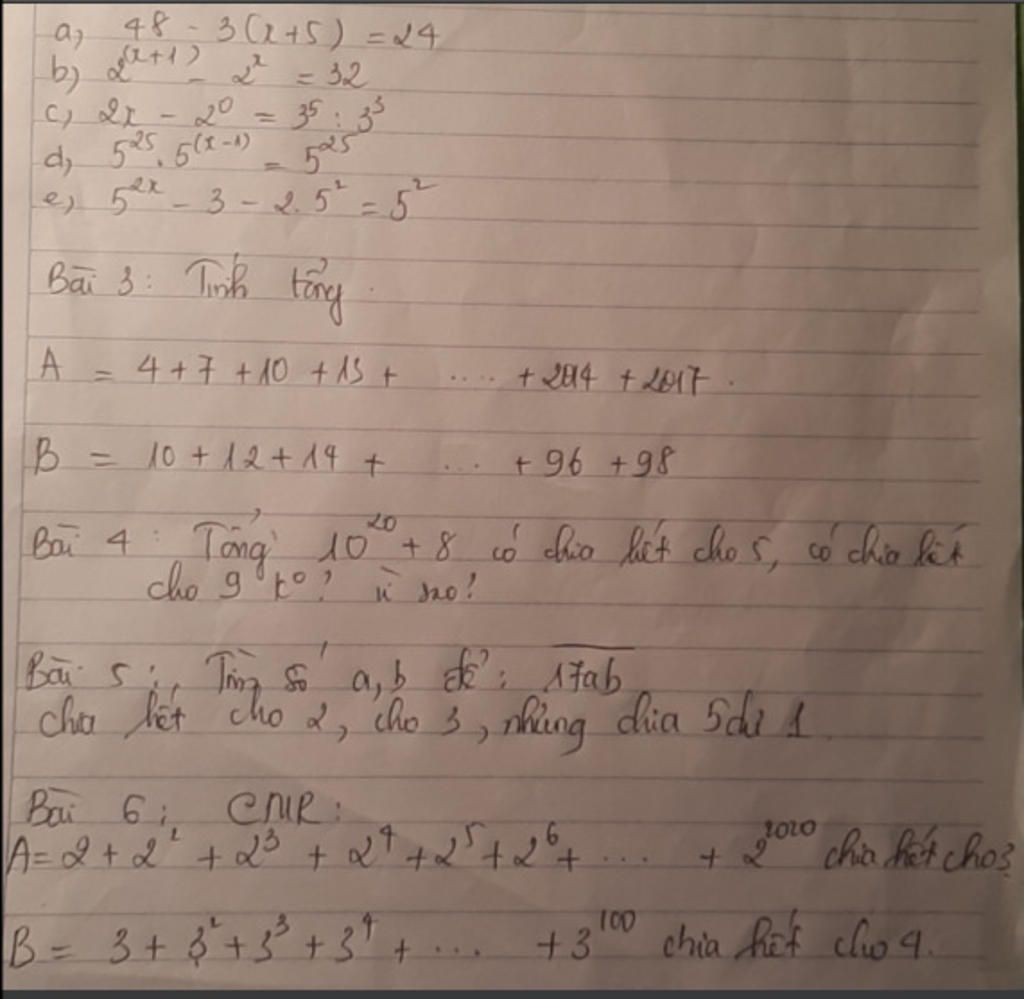 a) 48 - 3(x+5) = 24
b) 2^(x+1) - 2^x = 32
c) 2x - 2^0 = 3^5 : 3^3
d) 5^25 . 5^(x-1) = 5^25
e) 5^2x - 3 - 2.5^2 = 5^2
Bài 3: Tính tổng.
A = 4 + 7 + 10 + 13 + .... + 2014 + 2017.
B = 10 + 12 + 14 + ... + 96 + 98
Bài 4: Tổng 10^20 + 8 có chia hết cho 5, có chia hết
cho 9 ko? vì sao?
Bài 5: Tìm số a, b để: 17ab
chia hết cho 2, cho 3, nhưng chia 5 dư 1
Bài 6: CMR:
A = 2 + 2^2 + 2^3 + 2^4 + 2^5 + 2^6 + ... + 2^2020 chia hết cho 3
B = 3 + 3^2 + 3^3 + 3^4 + ... + 3^100 chia hết cho 4.